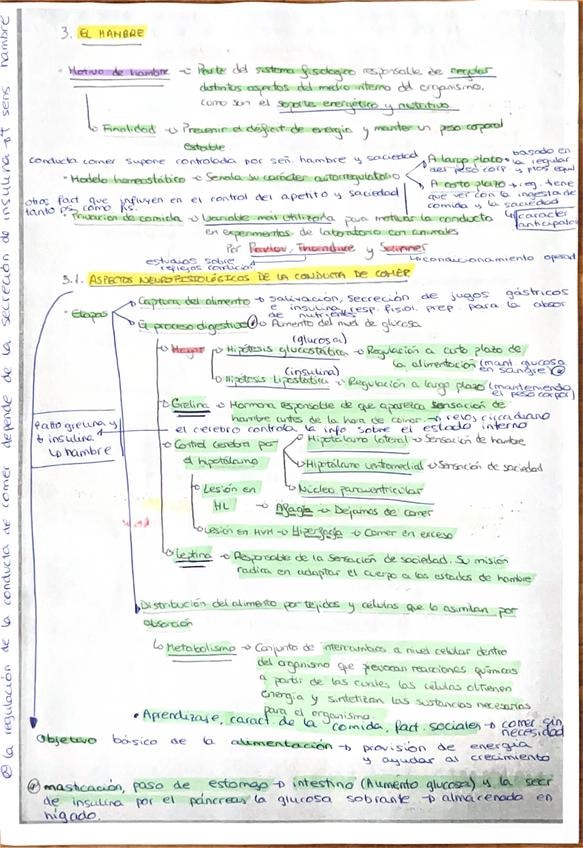 3. EL HAMBRE
· Motivo de hambre → Parte del sistema fisiológico responsable de regular
distintos aspectos del medio interno del organismo,
como son el soporte energético y nutritivo.
↳ Finalidad → Prevenir el déficit de energía y mantener un peso corporal
estable
conducta comer supone controlada por señ. hambre y sociedad
· Modelo homeostático → Señala su carácter autorregulatorio
A largo plazo → basado en
la regular
del peso corp
A corto plazo → reg. tiene
que ver con la ingesta de
comida y la saciedad
↳ carácter
otros fact que influyen en el control del apetito y saciedad
tanto ps. como fis.
· Privación de comida → Variable más utilizada para motivar la conducta
en experimentos de laboratorio con animales
Por Pavlov, Thorndike y Skinner
estudios sobre
reflejos condicion
↳ condicionamiento operant
3.1. ASPECTOS NEUROFISIOLÓGICOS DE LA CONDUCTA DE COMER
· Etapas
Captura del alimento → salivación, secreción de jugos gástricos
e insulina, resp. fisiol. prep para la absor
de nutrientes
El proceso digestivo → Aumento del nivel de glucosa
(glucosa)
Hogar → Hipótesis glucostática → Regulación a corto plazo de
la alimentación (mant glucosa
en sangre)
(insulina)
Hipótesis Lipostática → Regulación a largo plazo (manteniendo
el peso corpor)
Grelina → Hormona responsable de que aparezca sensación de
hambre antes de la hora de comer → reloj circadiano
el celebro controla la info sobre el estado interno
↑ alto grelina y
↓ insulina
↳ hambre
Control cerebral por
el hipotálamo
Hipotálamo lateral → Sensación de hambre
Hipotálamo ventomedial → Sensación de sociedad
Núcleo paraventricular
Lesión en
HL
→ Afagia → Dejamos de comer
Lesión en HVM → Hiperfagia → Comer en exceso
Leptina → Responsable de la sensación de sociedad. Su misión
radica en adaptar el cuerpo a los estados de hambre
Distribución del alimento por tejidos y células que lo asimilan por
absorción
↳ Metabolismo → Conjunto de intercambios a nivel celular dentro
del organismo que provocan reacciones químicas
a partir de las cuales las células obtienen
energía y sintetizan las sustancias necesarias
para el organismo.
• Aprendizaje, caract. de la comida, fact. sociales → comer sin
necesidad
Objetivo básico de la alimentación → provisión de energía
y ayudar al crecimiento
masticación, paso de estomago → intestino (Aumento glucosa) y la secr
de insulina por el páncreas la glucosa sobrante → almacenada en
hígado.
la regulación de la conducta de comer depende de la secreción de insulina → ↑ sens hambre